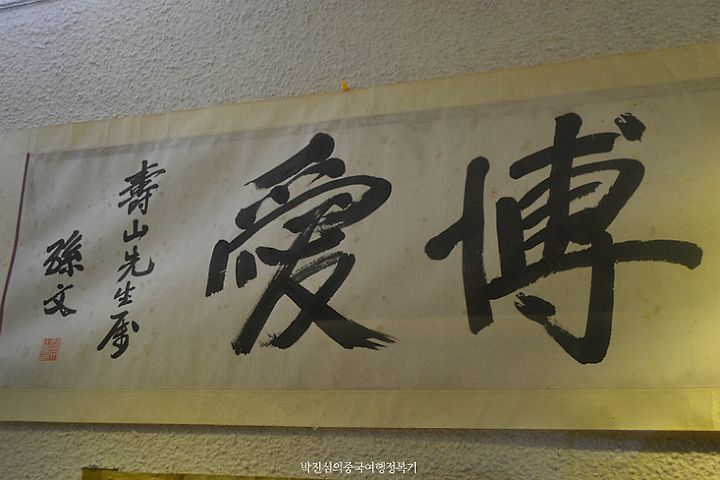 博愛
壽山先生屬
孫文
박진심의중국여행정복기